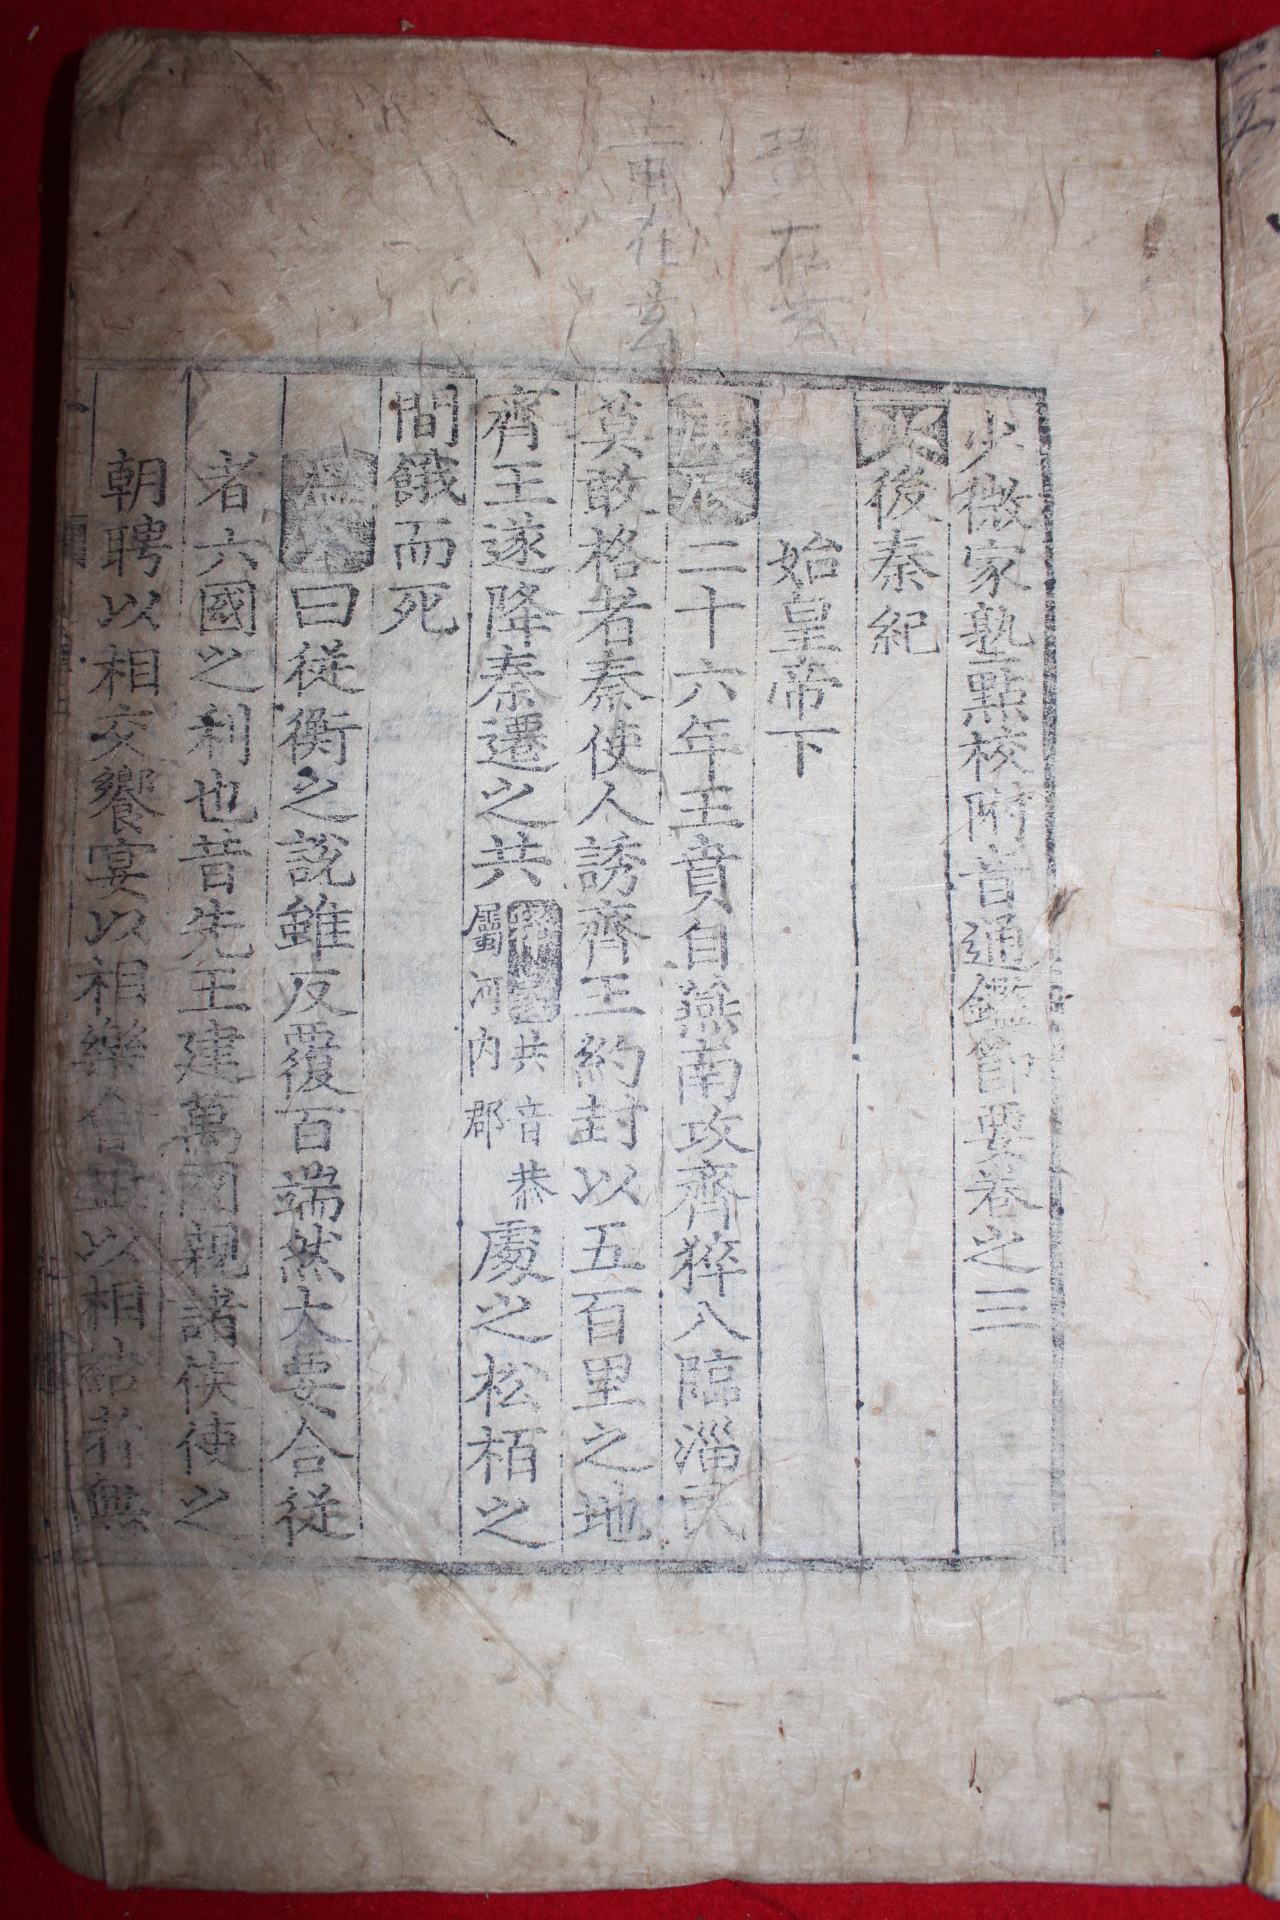 少微家塾點校附音通鑑節要卷之三
後秦紀
始皇帝下
辰二十六年王賁自燕南攻齊猝入臨淄民
莫敢格者秦使人誘齊王約封以五百里之地
齊王遂降秦遷之共
共音恭
屬河內郡
處之松栢之
間餓而死
溫公曰從衡之說雖反覆百端然大要合從
者六國之利也昔先王建萬國親諸侯使之
朝聘以相交饗宴以相樂會盟以相結者無